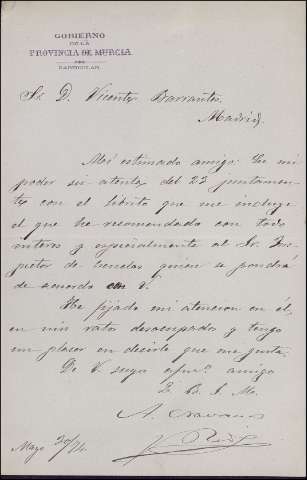 GOBIERNO
DE LA
PROVINCIA DE MURCIA
PARTICULAR
Sr. D. Vicente Barrantes
Madrid
Mi estimado amigo: En mi
poder su atenta del 23 juntamen-
te con el librito que me incluye
el que he recomendado con todo
interes y especialmente al Sr. Ins-
pector de Escuelas quien se pondrá
de acuerdo con V.
He fijado mi atencion en él,
en mis ratos desocupados y tengo
un placer en decirle que me gusta.
De V. suyo afmo. amigo
Q. B. S. M.
A. Navarro
Mayo 30/74.